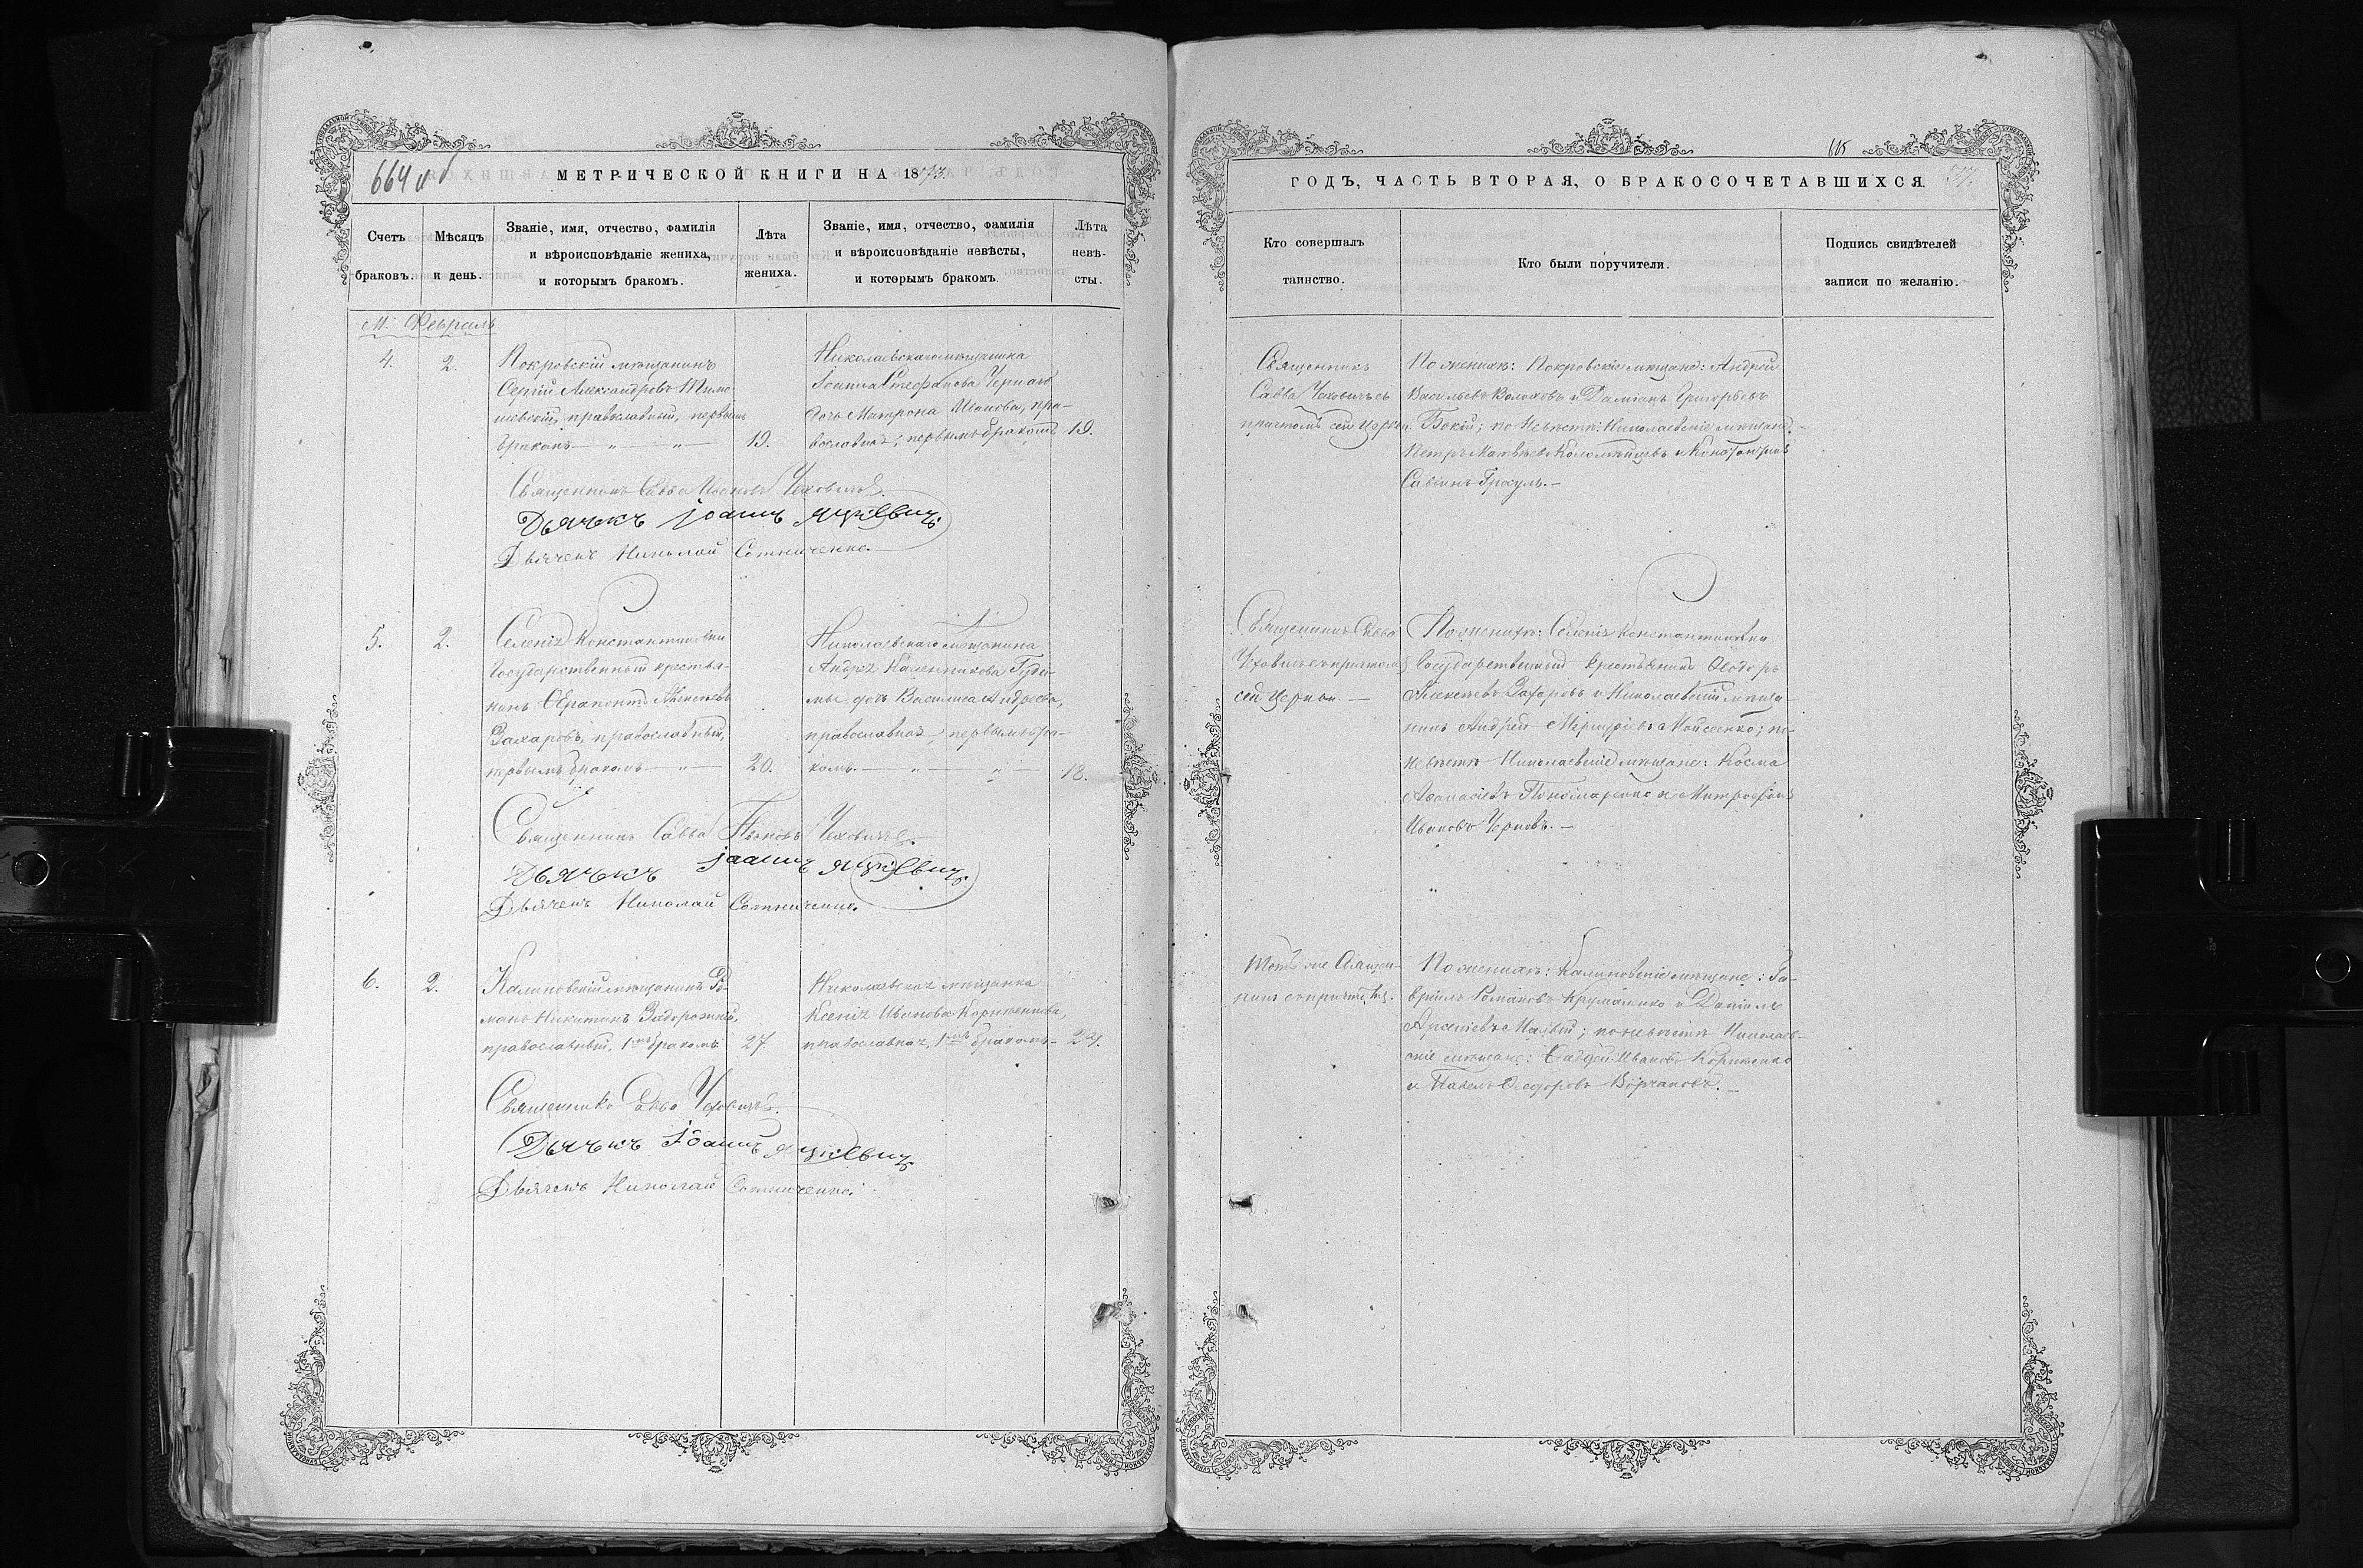 664 об
МЕТРИЧЕСКОЙ КНИГИ НА 1873.
Счетъ браковъ.
Мѣсяцъ и день.
Званіе, имя, отчество, фамилія
и вѣроисповѣданіе жениха,
и которымъ бракомъ.
Лѣта
жениха.
Званіе, имя, отчество, фамилія
и вѣроисповѣданіе невѣсты,
и которымъ бракомъ.
Лѣта
невѣ-
сты.
М. Февраль
4.
2.
Покровскій мѣщанинъ
Сергій Александровъ Тимо-
шевскій, православный, первымъ
бракомъ
19.
Николаевскаго мѣщанина
Іоанна Стефанова
дочь Матрона Иванова, пра-
вославная, первымъ бракомъ
19.
Священникъ Савва Чеховичъ.
Дьячекъ Іоаннъ
Дьячекъ Николай Сотниченко.
5.
2.
Селенія Константиновки
Государственный крестья-
нинъ Ферапонтъ Алексѣевъ
Захаровъ, православный,
первымъ бракомъ
20.
Николаевскаго мѣщанина
Андрея Каленикова
дочь Василиса Андреева,
православная, первымъ бра-
комъ.
18.
Священникъ Савва Чеховичъ.
Дьячекъ Іоаннъ
Дьячекъ Николай Сотниченко.
6.
2.
Калиновскій мѣщанинъ Ро-
манъ Никитинъ Задорожный,
православный, 1мъ бракомъ
27.
Николаевская мѣщанка
Ксенія Иванова
православная, 1мъ бракомъ
Священникъ Савва Чеховичъ.
Дьячекъ Іоаннъ
Дьячекъ Николай Сотниченко.
ГОДЪ, ЧАСТЬ ВТОРАЯ, О БРАКОСОЧЕТАВШИХСЯ.
Кто совершалъ
таинство.
Кто были поручители.
Подпись свидѣтелей
записи по желанію.
Священникъ
Савва Чеховичъ съ
причтомъ сей Церкви.
По женихѣ: Покровскіе мѣщане: Андрей
Васильевъ Волоховъ и Даміанъ Григорьевъ
Бокій; по невѣстѣ: Николаевскіе мѣщане
Петръ Матвѣевъ Коломѣйцевъ и Константинъ
Саввинъ
Священникъ Савва
Чеховичъ съ причтомъ
сей Церкви.
По женихѣ: Селенія Константиновки
Государственный крестьянинъ Ѳеодоръ
Алексѣевъ Захаровъ и Николаевскій мѣща-
нинъ Андрей Мойсеенко; по
невѣстѣ Николаевскіе мѣщане: Косма
Аѳанасіевъ Пономаренко и Митрофанъ
Ивановъ
Тотъ же Священ-
никъ съ причтомъ
По женихѣ: Калиновскіе мѣщане: Га-
вріилъ Романовъ и Даніилъ
Арсеніевъ Малый; по невѣстѣ Николаев-
скіе мѣщане: Ѳаддей Ивановъ
и Павелъ Ѳеодоровъ